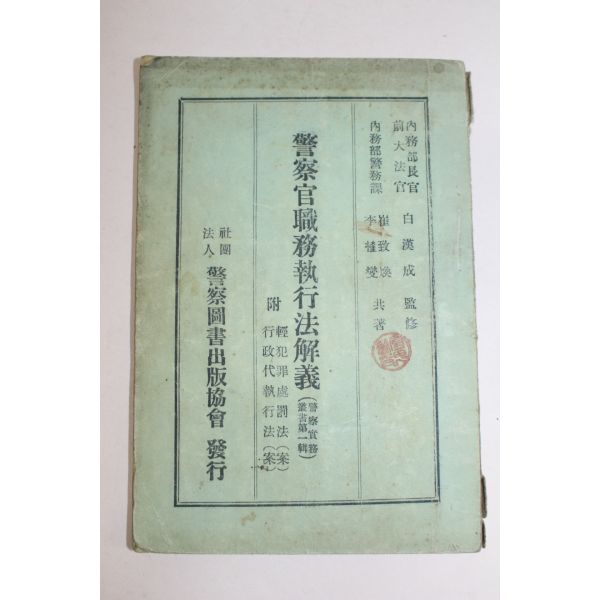 內務部長官
前大法官
白漢成 監修
內務部警務課
崔致煥
李權燮
共著
警察官職務執行法解義
(警察實務叢書第一輯)
附
輕犯罪處罰法(案)
行政代執行法(案)
社團法人
警察圖書出版協會 發行